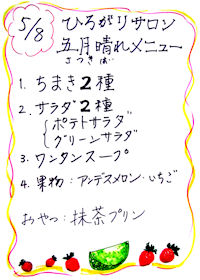 5/8 ひろがりサロン
五月晴れメニュー
さつきばれ
1. ちまき2種
2. サラダ2種
ポテトサラダ
グリーンサラダ
3. ワンタンスープ
4. 果物：アンデスメロン・いちご
おやつ：抹茶プリン